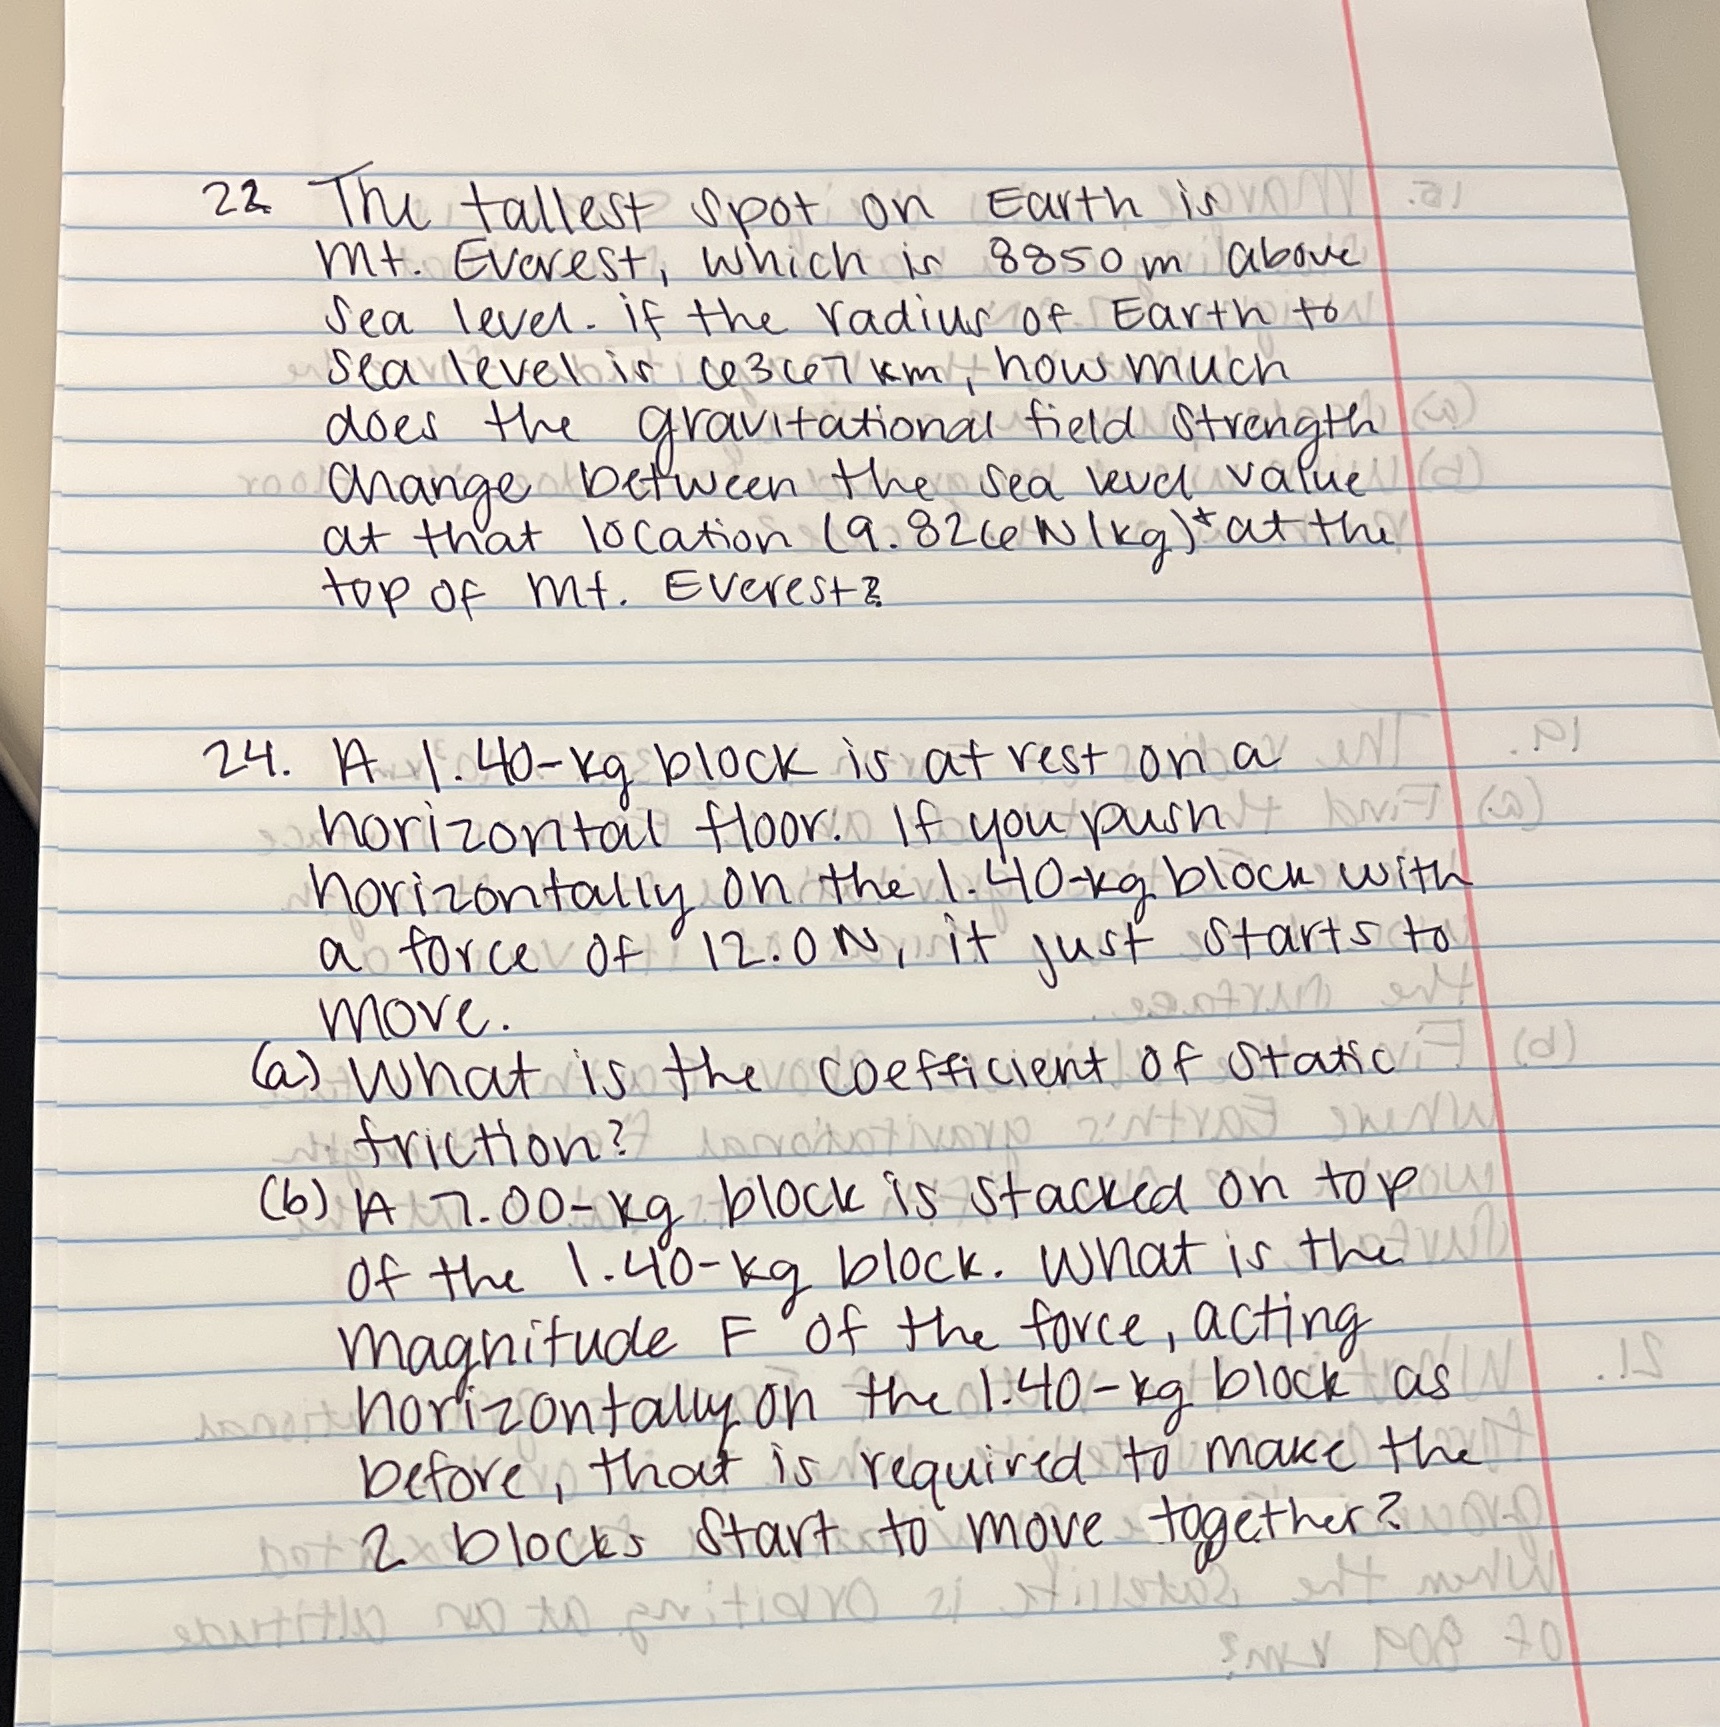 22 The tallest spot on Earth is
Mt. Everest, which is 8850 m above
sea level. if the radius of Earth to
sea level is 6367 km, how much
does the gravitational field strength
change between the sea level value
at that location (9.826 N/kg) + at the
top of Mt. Everest?
24. A 1.40-kg block is at rest on a
horizontal floor. If you push
horizontally on the 1.40-kg block with
a force of 12.0 N, it just starts to
move.
(a) What is the coefficient of static
friction?
(b) A 7.00-kg block is stacked on top
of the 1.40-kg block. What is the
magnitude F of the force, acting
horizontally on the 1.40-kg block as
before, that is required to make the
2 blocks start to move together?